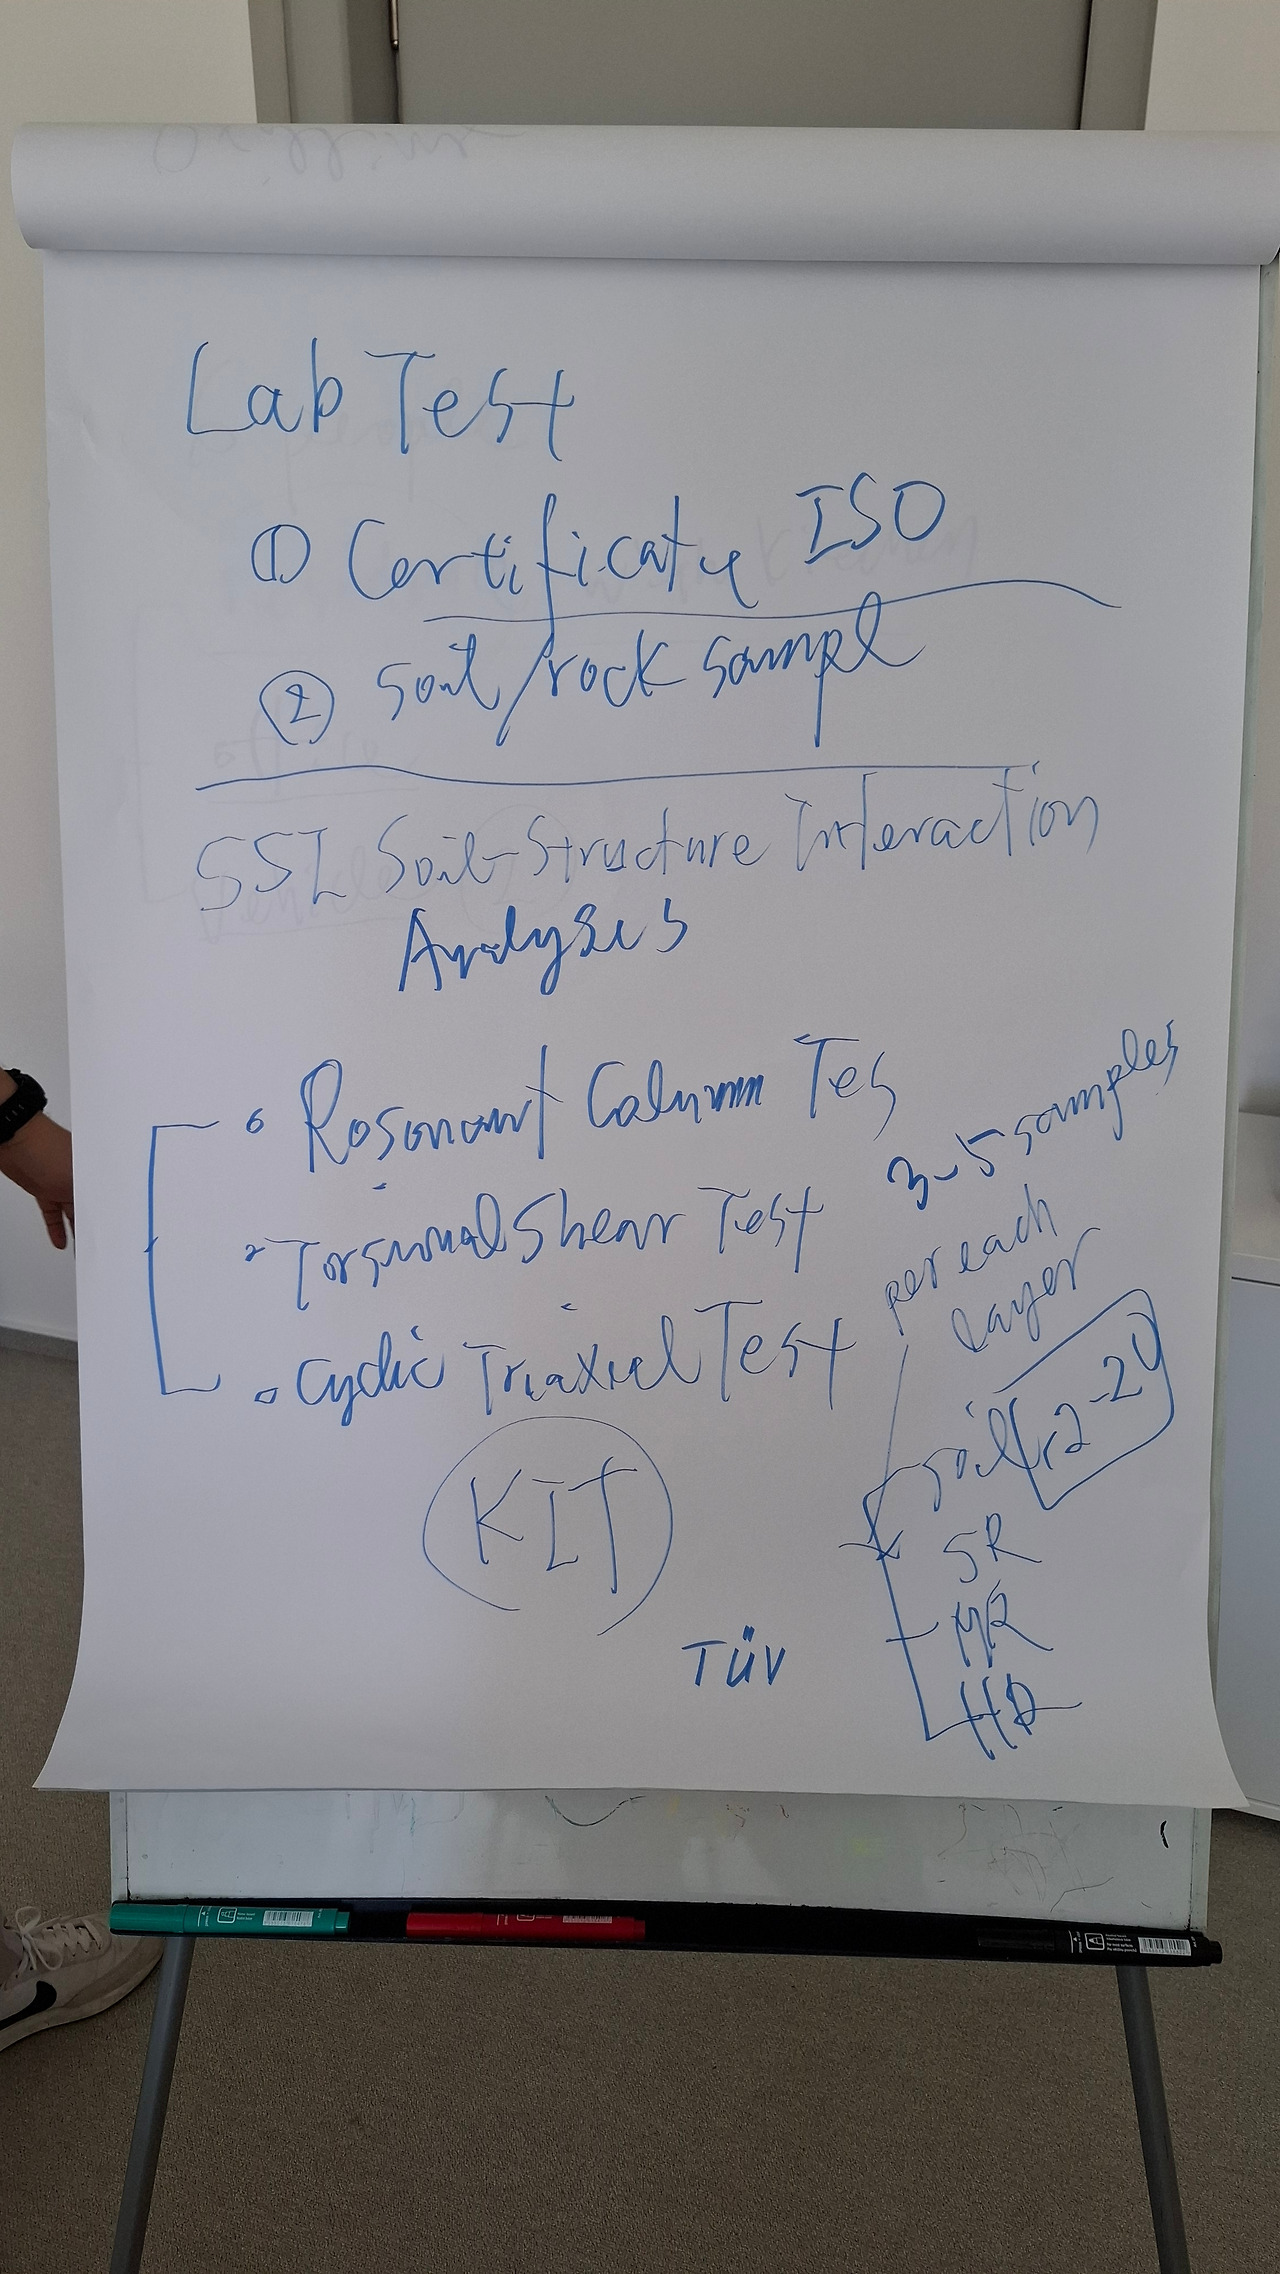 Lab Test
① Certificate ISO
② Soil/rock sampl
SSI Soil-Structure Interaction
Analyses
Resonant Column Tes
Torsional Shear Test
Cyclic Triaxial Test
3-5 samples
per each
layer
soil
SR
MR
HR
KIT
TÜV